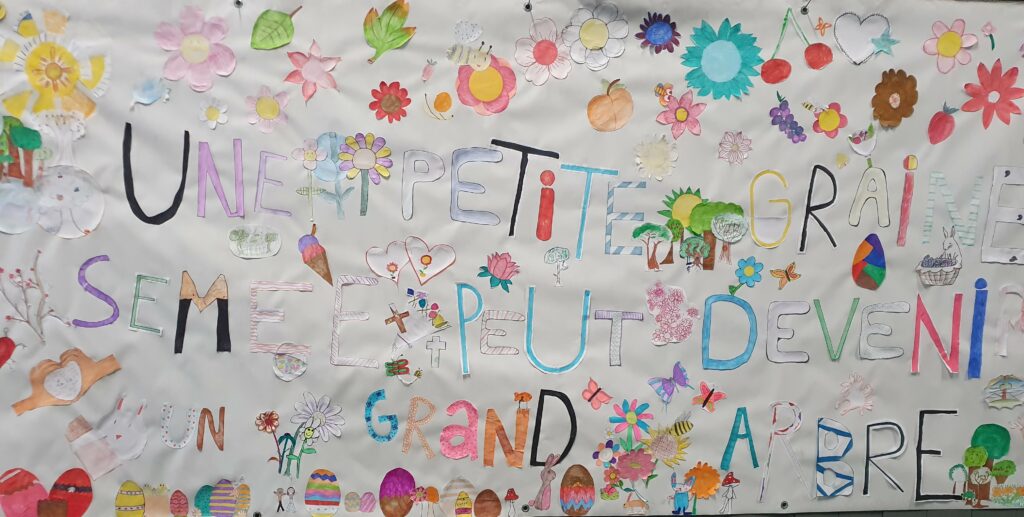 UNE PETiTE GRAiNE
SEMEE PEUT DEVENiR
UN GRaND ARBRE